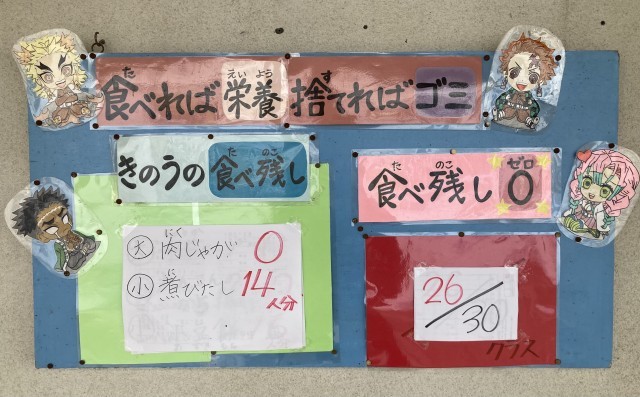 食べれば栄養 捨てればゴミ
きのうの食べ残し
大 肉じゃが 0
小 煮びたし 14人分
食べ残し0
26/30
クラス